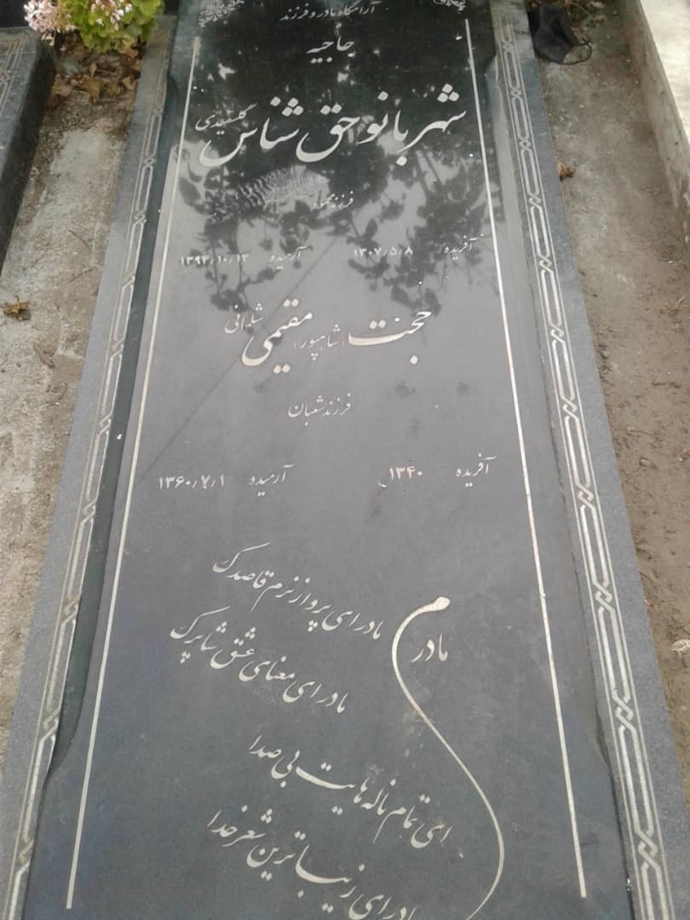 آرامگاه مادر و فرزند
حاجیه
شهربانو حق شناس گلسفیدی
فرزند محمد
آفریده ۱۳۰۷/۵/۸ آرمیده ۱۳۹۴/۱۰/۱۴
حجت (شاهپور) مقیمی شلمانی
فرزند شعبان
آفریده ۱۳۴۰ آرمیده ۱۳۶۰/۷/۱
مادرم
مادر ای پرواز نرم قاصدک
مادر ای معنای عشق شاپرک
ای تمام ناله هایت بی صدا
مادر ای زیباترین شعر خدا